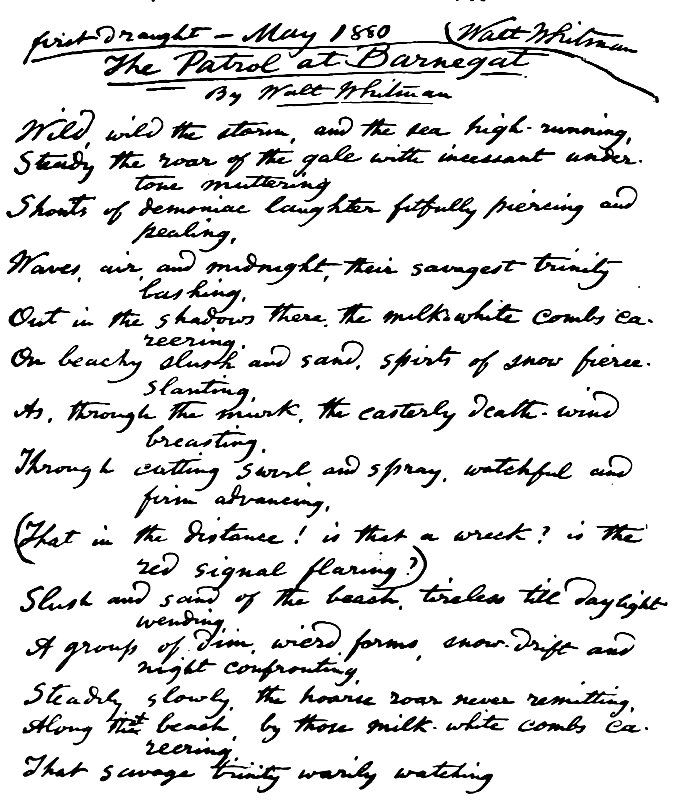 first draught — May 1880 (Walt Whitman
The Patrol at Barnegat
By Walt Whitman
Wild, wild the storm, and the sea high-running,
Steady the roar of the gale with incessant under-
tone muttering
Shouts of demoniac laughter fitfully piercing and
pealing,
Waves, air, and midnight, their savagest trinity
lashing,
Out in the shadows there, the milk-white combs ca-
reering,
On beachy slush and sand, spirts of snow fierce-
slanting,
As, through the murk, the easterly death-wind
breasting,
Through cutting swirl and spray, watchful and
firm advancing,
(That in the distance! is that a wreck? is the
red signal flaring?)
Slush and sand of the beach, tireless till daylight
wending,
A group of dim, wierd forms, snow-drift and
night confronting,
Steadily, slowly, the hoarse roar never remitting,
Along that beach, by those milk-white combs ca-
reering,
That savage trinity warily watching